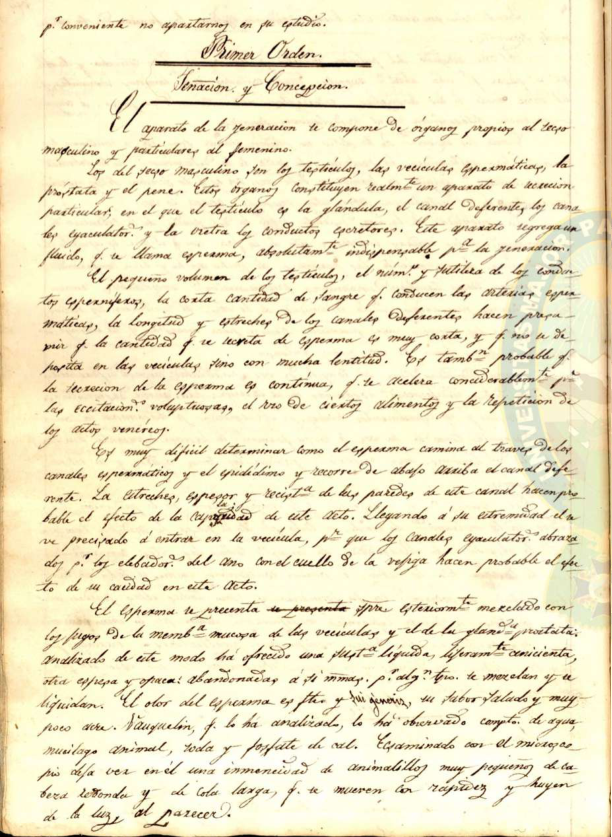 pr. conveniente no apartarnos en su estudio.
Primer Orden.
Jenacion y Concepcion.
El aparato de la jeneracion se compone de órganos propios al secso
masculino y particulares al femenino.
Los del secso masculino son los testículos, las vecículas espermáticas, la
próstata y el pene. Estos órganos constituyen realmte. un aparato de secrecion
particular, en el que el testículo es la glándula, el canal deferente, los cana
les eyaculators. y la uretra los conductos escretores. Este aparato segrega un
fluido, q. se llama esperma, absolutamte. indispensable pa. la jeneracion.
El pequeño volumen de los testiculos, el numo. y sutileza de los conduc
tos espermíferos, la corta cantidad de sangre q. conducen las arterias esper
máticas, la longitud y estreches de los canales deferentes hacen presu
mir q. la cantidad q. se secreta de esperma es muy corta, y q. no se de
posita en las vecículas sino con mucha lentitud. Es tambn. probable q.
la secrecion de la esperma es continua, q. se acelera conciderablemte. pr.
las ecitacions. voluptuosas, el uso de ciertos alimentos y la repeticion de
los actos venereos.
Es muy dificil determinar como el esperma camina al traves de los
canales espermáticos y el epididimo y recorre de abajo arriba el canal defe
rente. La estreches, espesor y resista. de las paredes de este canal hacen pro
bable el efecto de la de este acto. Llegando á su estremidad el se
ve precisado á entrar en la vecícula, pr. que los canales eyaculators. abraza
dos pr. los elebadors. del ano con el cuello de la vejiga hacen probable el efec
to de su caidad en este acto.
El esperma se precenta se presenta spre. esteriormte. mezclado con
los jugos de la memba. mucosa de las vecículas y el de la glanda. prostata:
analizado de este modo há ofrecido una susta. liquida, lijeramte. cenicienta,
otra espesa y opaca: abandonadas á si mmas. pr. algn. tpo. se mezclan y se
liquidan. El olor del esperma es fte. y sui géneris, su sabor salado y muy
poco acre. Vauquelin, q. lo ha analizado, lo há observado compto. de agua,
mucilago animal, soda y fosfate de cal. Ecsaminado con el microsco-
pio deja ver en él una inmencidad de animalillos muy pequeños de ca-
beza redonda y de cola larga, q. se mueven con rapidez y huyen
de la luz, al parecer.